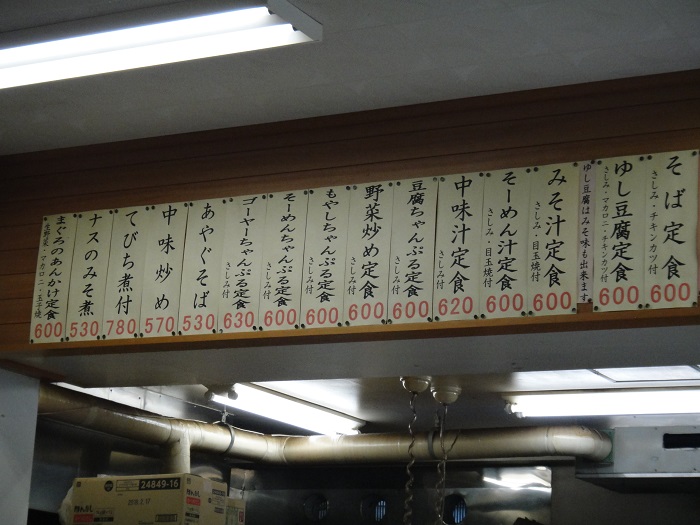 そば定食
さしみ・チキンカツ付
600
ゆし豆腐定食
さしみ・マカロニ・チキンカツ付
600
ゆし豆腐はみそ味も出来ます
みそ汁定食
さしみ・目玉焼付
600
そーめん汁定食
さしみ・目玉焼付
600
中味汁定食
さしみ付
620
豆腐ちゃんぷる定食
さしみ付
600
野菜炒め定食
さしみ付
600
もやしちゃんぷる定食
さしみ付
600
そーめんちゃんぷる定食
さしみ付
600
ゴーヤーちゃんぷる定食
さしみ付
630
あやぐそば
530
中味炒め
570
てびち煮付
780
ナスのみそ煮
530
まぐろのあんかけ定食
生野菜・マカロニ・玉子焼
600
24849-16